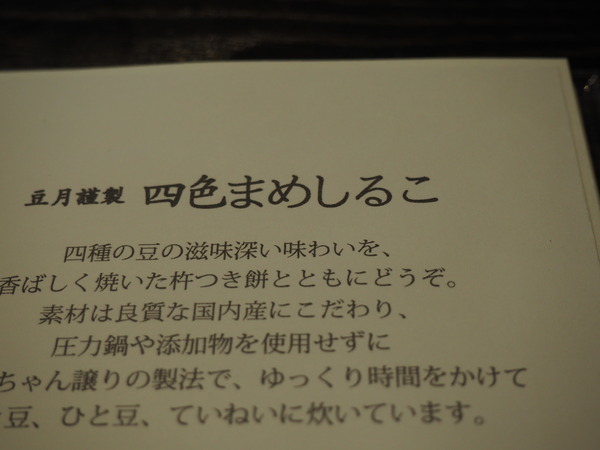 豆月謹製 四色まめしるこ
四種の豆の滋味深い味わいを、
香ばしく焼いた杵つき餅とともにどうぞ。
素材は良質な国内産にこだわり、
圧力鍋や添加物を使用せずに
ちゃん譲りの製法で、ゆっくり時間をかけて
豆、ひと豆、ていねいに炊いています。